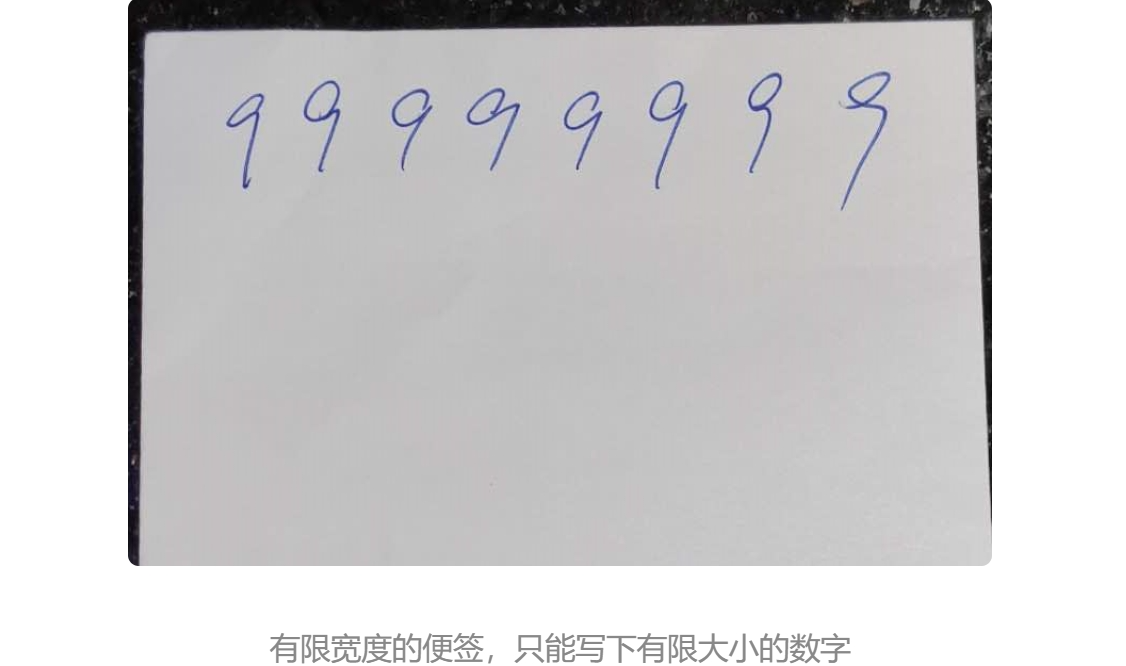 9 9 9 9 9 9 9 9
有限宽度的便签，只能写下有限大小的数字